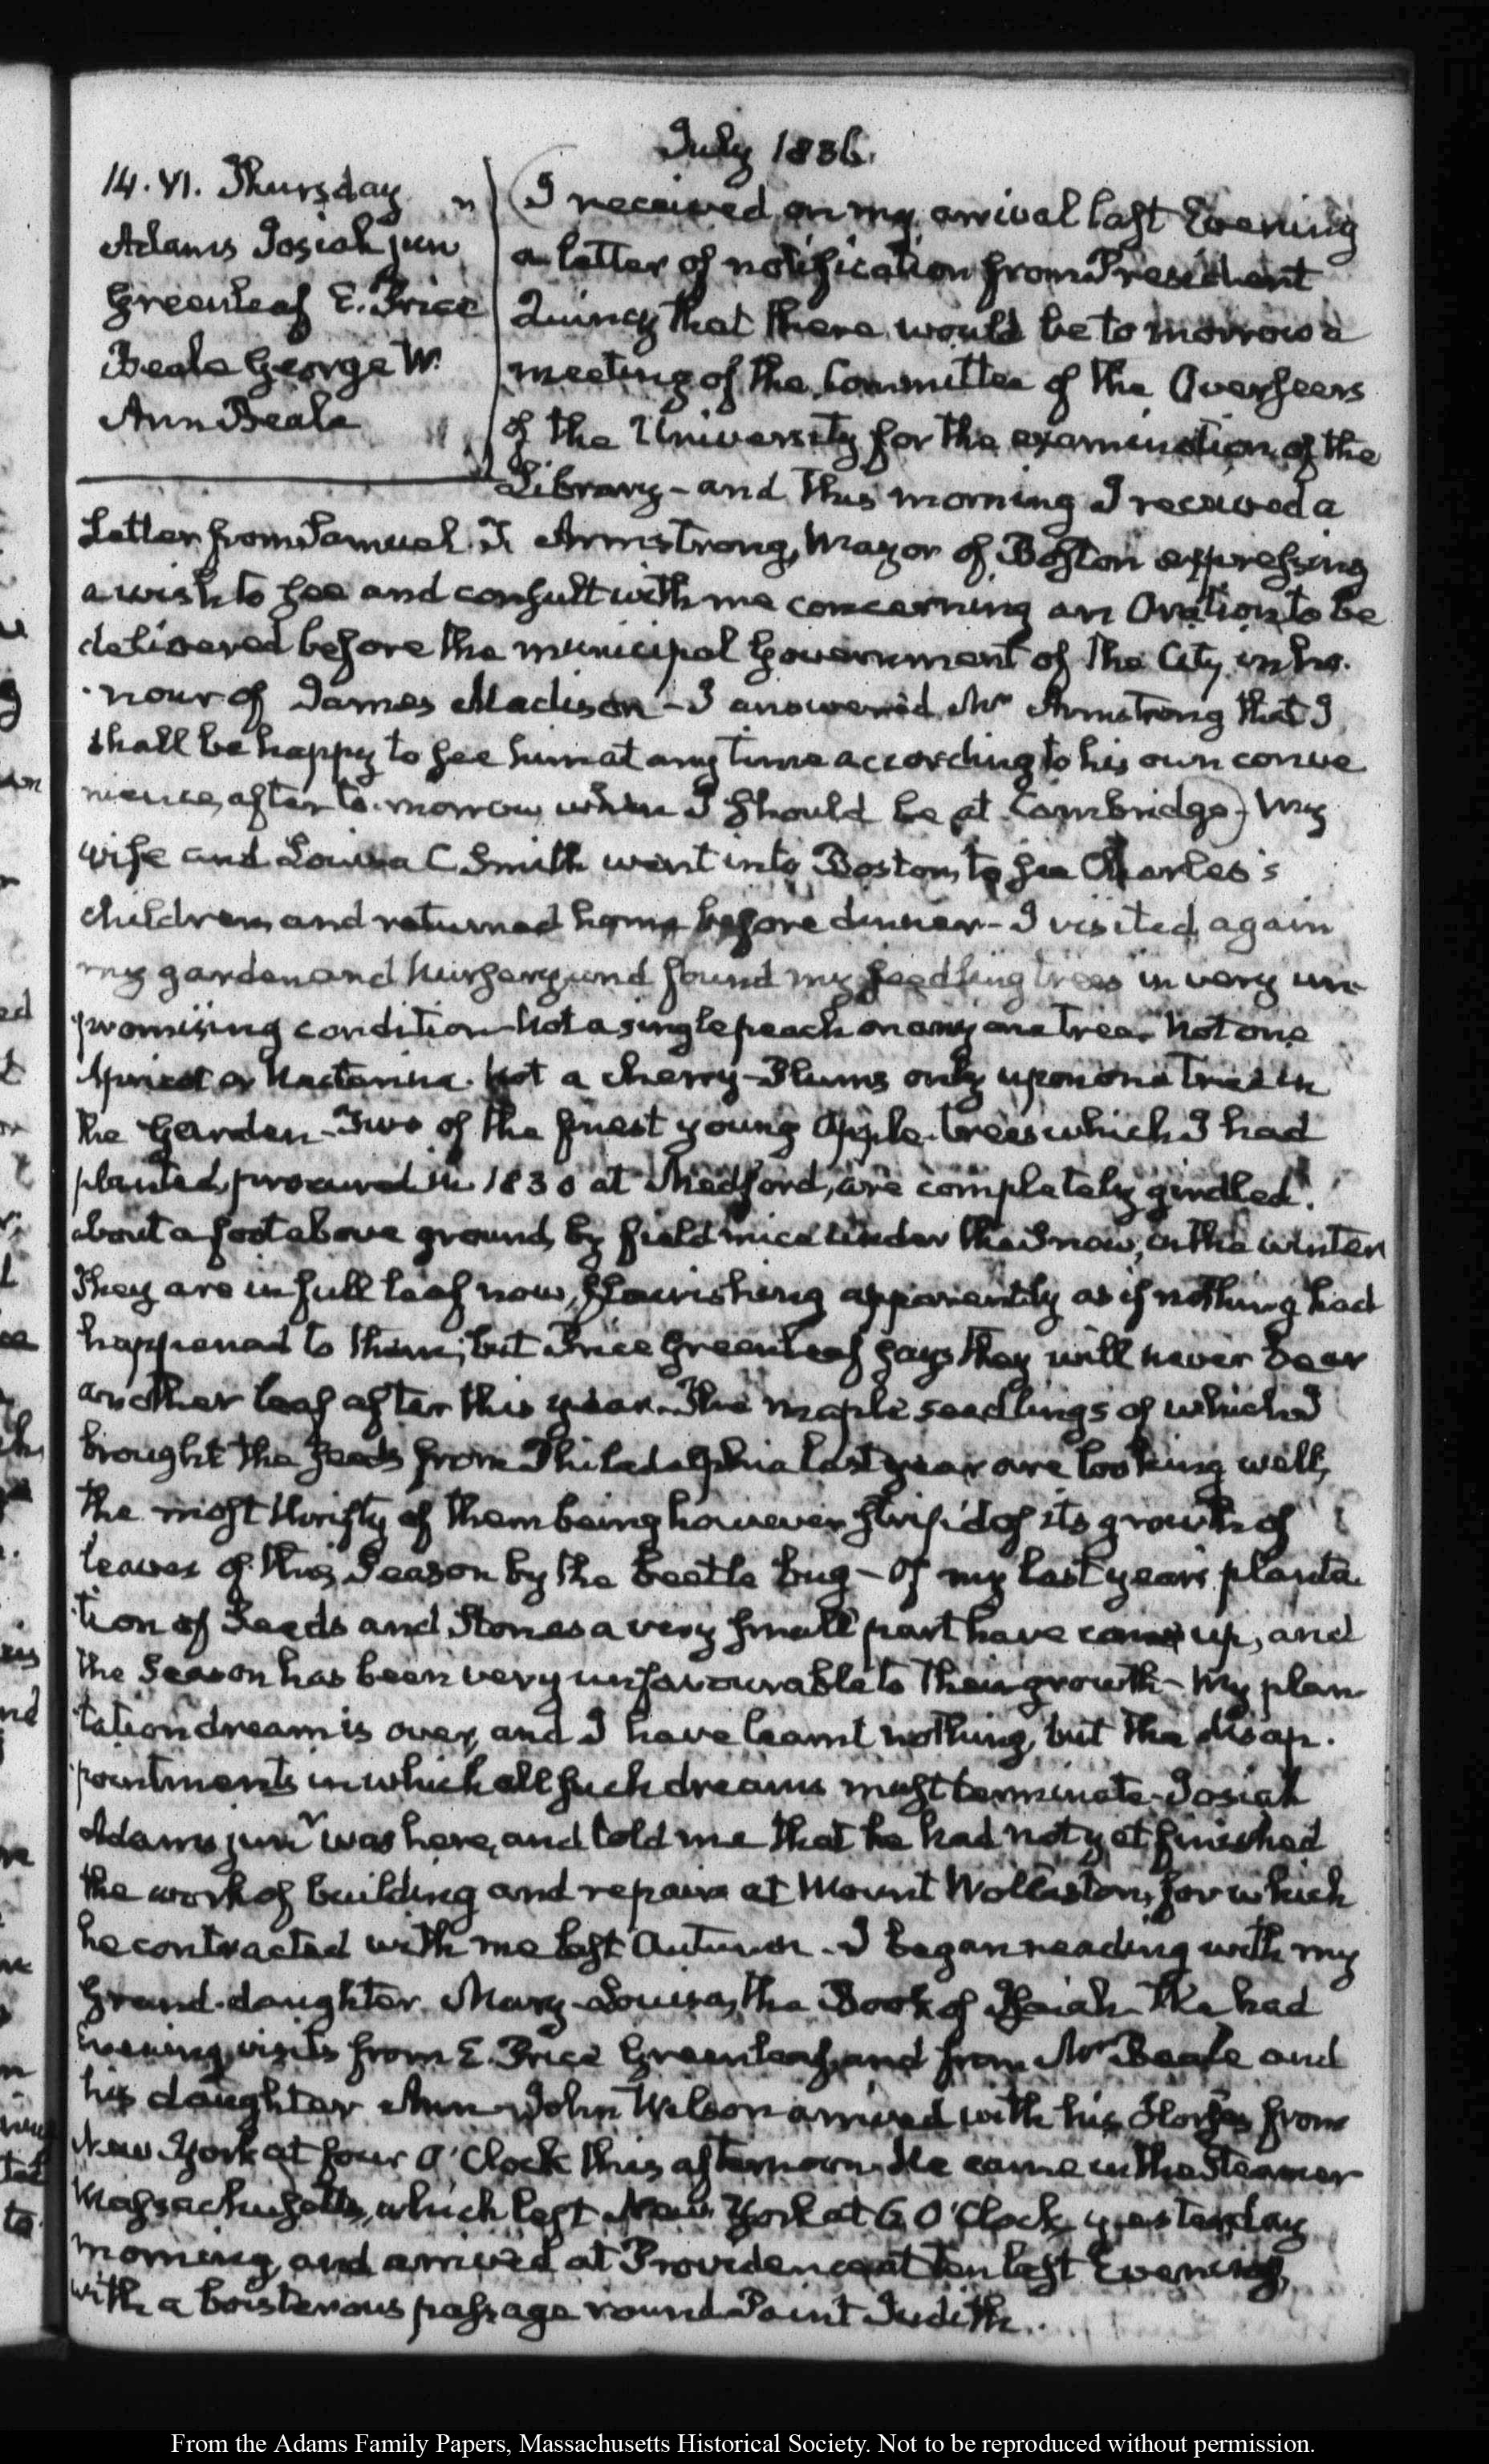 July 1836.
14. VI. Thursday
Adams Josiah jun
Greenleaf E. Price
Beale George W.
Ann Beale
I received on my arrival last Evening
a letter of notification from President
Quincy that there would be to morrow a
meeting of the Committee of the Overseers
of the University for the examination of the
Library - and this morning I received a
Letter from Samuel T. Armstrong, Mayor of Boston expressing
a wish to see and consult with me concerning an Oration to be
delivered before the municipal Government of the City in ho-
nour of James Madison - I answered Mr Armstrong that I
shall be happy to see him at any time according to his own conve
nience, after to-morrow when I should be at Cambridge) My
wife and Louisa C Smith went into Boston, to see Charles's
children, and returned home before dinner - I visited again
my garden and Nursery and found my seedling trees in very un-
promising condition - Not a single peach on any one tree - Not one
Apricot or Nectarine. Not a cherry - Plums only upon one tree in
the Garden - Two of the finest young Apple-trees which I had
planted, procured in 1830 at Medford, are completely girdled
about a foot above ground, by field mice under the Snow, in the winter
They are in full leaf now, flourishing apparently as if nothing had
happened to them; but Price Greenleaf says they will never bear
another leaf after this year. The maple seedlings of which I
brought the seeds from Philadelphia last year are looking well,
the most thrifty of them being however strip'd of its growth of
leaves of this Season by the beetle bug - Of my last years planta
tion of Seeds and Stones a very small part have come up, and
the Season has been very unfavourable to their growth - My plan
tation dream is over, and I have learnt nothing, but the disap-
pointments in which all such dreams must terminate - Josiah
Adams junr was here, and told me that he had not yet finished
the work of building and repairs at Mount Wollaston, for which
he contracted with me last Autumn - I began reading with my
Grand-daughter Mary-Louisa, the Book of Isaiah - We had
Evening visits from E. Price Greenleaf, and from Mr Beale and
his daughter Ann - John Wilson arrived with his Horses from
New York at four O'Clock this afternoon. He came in the Steamer
Massachusetts, which left New York at 6 O'Clock yesterday
morning, and arrived at Providence at ten last Evening,
with a boisterous passage round Point Judith.
From the Adams Family Papers, Massachusetts Historical Society. Not to be reproduced without permission.